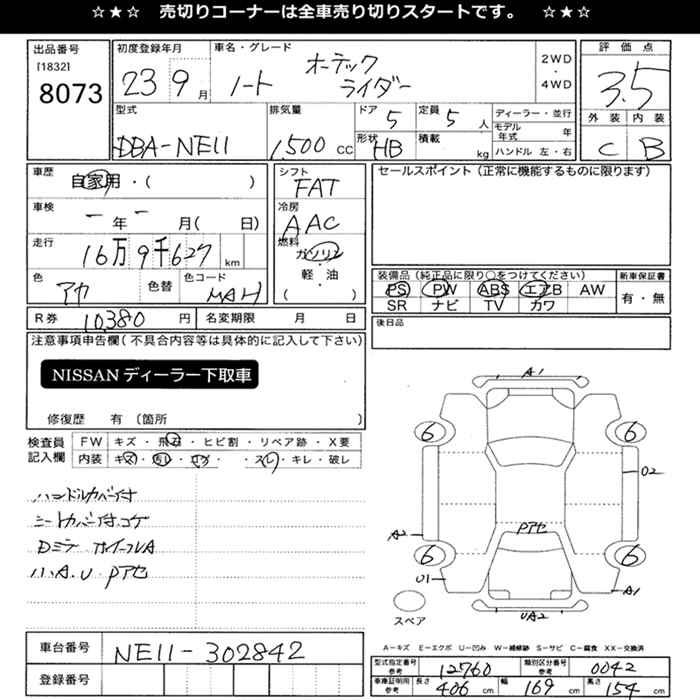 ☆★☆ 売切りコーナーは全車売り切りスタートです。 ☆★☆
出品番号
[1832]
8073
初度登録年月
23 9 月
車名・グレード
ノート オーテック
ライダー
2WD
・
4WD
評価点
3.5
外装 内装
C B
型式
DBA-NE11
排気量
1,500 CC
ドア 5
形状 HB
定員 5 人
積載 kg
ディーラー・並行
モデル年式 年
ハンドル 左・右
車歴
自家用・( )
車検
ー 年 ー 月( 日)
走行
16万9千627 km
色
アカ
色替
色コード
シフト
FAT
冷房
AAC
燃料
ガソリン
・
軽・油
( )
セールスポイント(正常に機能するものに限ります)
装備品(純正品に限り○をつけてください)
PS PW ABS エアB AW
SR ナビ TV カワ
新車保証書
有・無
R券 10,380 円
名変期限 月 日
後日品
注意事項申告欄(不具合内容等は具体的に記入して下さい)
NISSAN ディーラー下取車
修復歴 有 (箇所 )
検査員
記入欄
FW キズ・飛石・ヒビ割・リペア跡・X要
内装 キズ・汚レ・コゲ・ ・スレ・キレ・破レ
ハンドルカバー付
シートカバー付.コゲ
A1
6 6
02
A2
6 6
01
A1
UA2
スペア
車台番号
NE11-302842
登録番号
A-キズ E-エクボ U-凹み W-補修跡 S-サビ C-腐食 XX-交換済
型式指定番号
参考
12760
類別区分番号
参考
0042
車庫証明用
参考
長さ 406 cm
幅 169 cm
高さ 154 cm